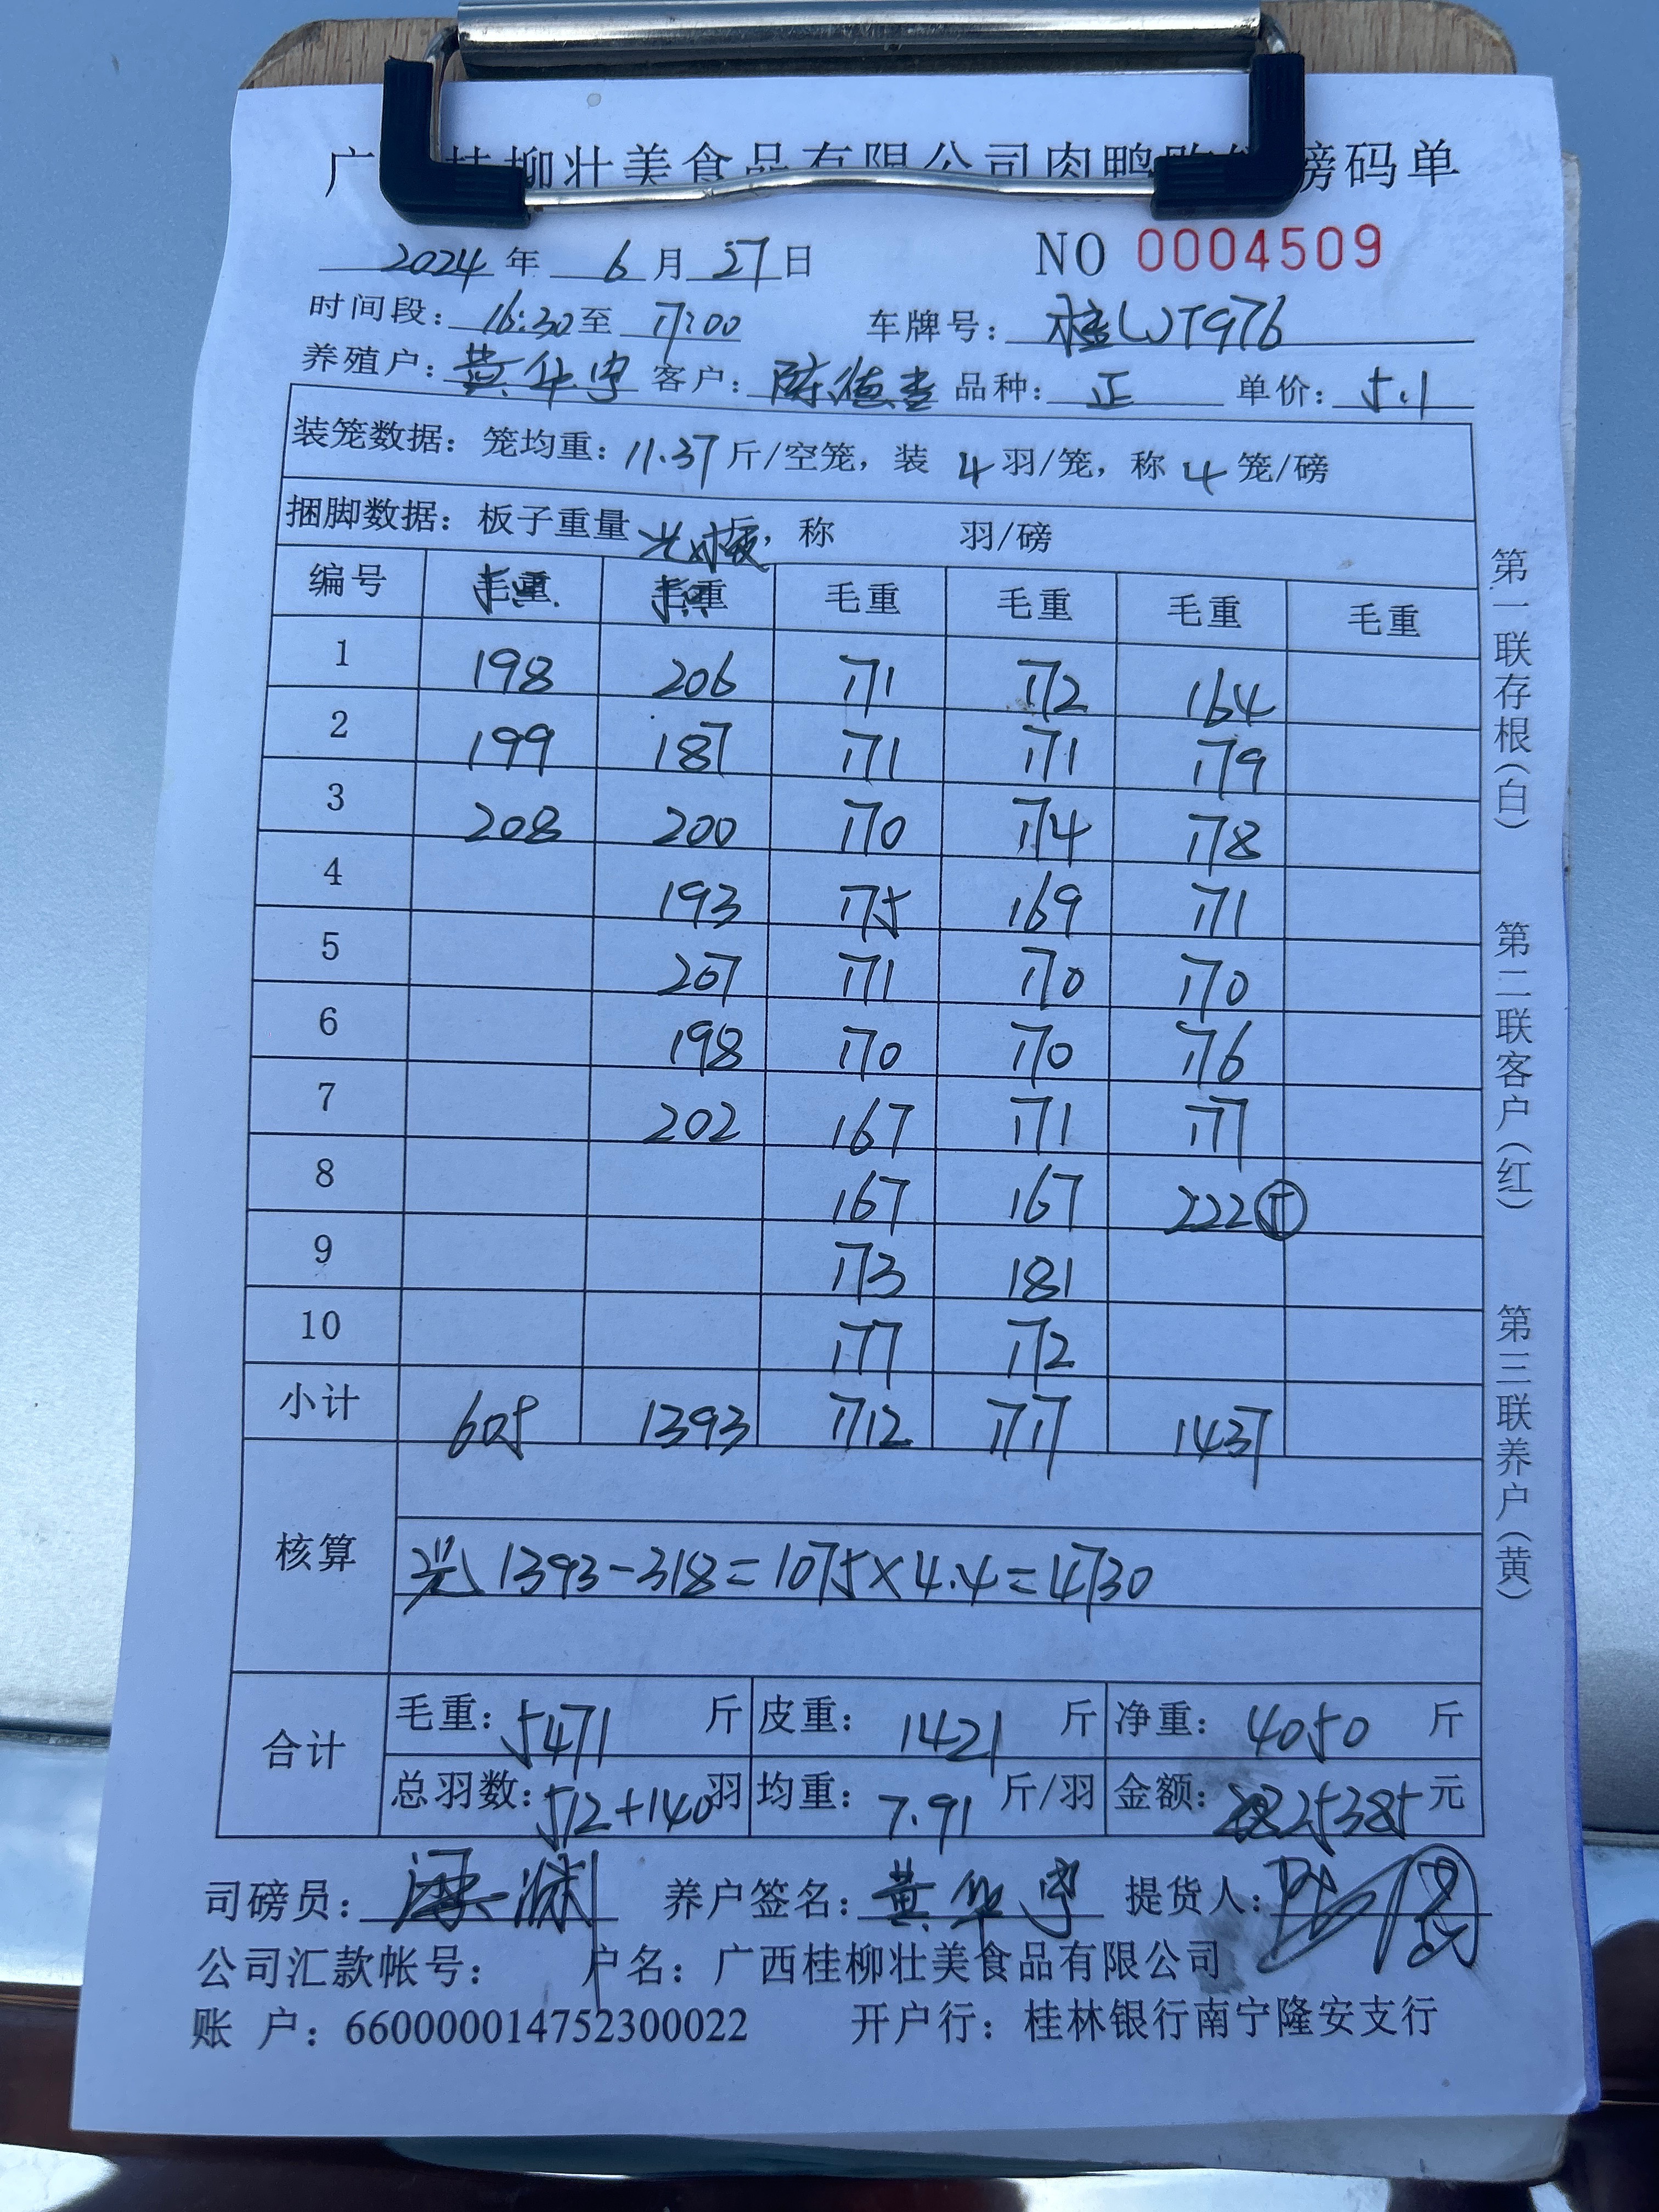 广 桂柳壮美食品有限公司肉鸭 磅码单
2024年 6月 27日 NO 0004509
时间段: 16:30至 17:00 车牌号: 桂WT976
养殖户: 黄华宇 客户: 陈德 品种: 正 单价: 5.1
装笼数据: 笼均重: 11.37斤/空笼, 装 4羽/笼, 称 4笼/磅
捆脚数据: 板子重量 斤, 称 羽/磅
编号 毛重 毛重 毛重 毛重 毛重 毛重
1 198 206 171 172 164
2 199 187 171 171 179
3 208 200 170 174 178
4 193 175 169 171
5 207 171 170 170
6 198 170 170 176
7 202 167 171 177
8 167 167 222⑤
9 173 181
10 177 172
小计 605 1393 1712 1717 1437
核算 光 1393-318=1075×4.4=4730
合计
毛重: 5471 斤 皮重: 1421 斤 净重: 4050 斤
总羽数: 512+140羽 均重: 7.91 斤/羽 金额: 25385元
司磅员: 养户签名: 黄华宇 提货人:
公司汇款帐号: 户名: 广西桂柳壮美食品有限公司
账 户: 660000014752300022 开户行: 桂林银行南宁隆安支行
第一联存根(白) 第二联客户(红) 第三联养户(黄)